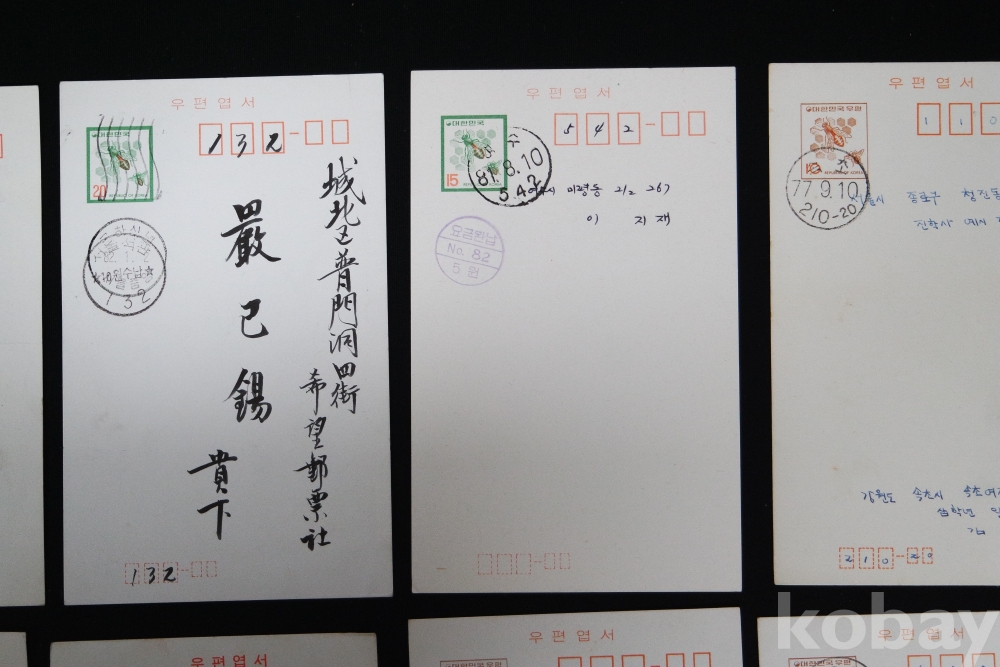 우편엽서
대한민국
20
132-
城北区普門洞四街
希望郵票社
嚴已錫
貴下
132
132-
우편엽서
대한민국
15
542-
여수
81.8.10
542
미평동 212 267
이 지 재
요금완납
No. 82
5원
우편엽서
대한민국우편
110
속초
77.9.10
210-20
서울시 종로구 청진동
진학사
강원도 속초시 속초여
삼학년
김
210-20
우편엽서
우편엽서
우편엽서
대한민국우편
대한민국우편
kobay